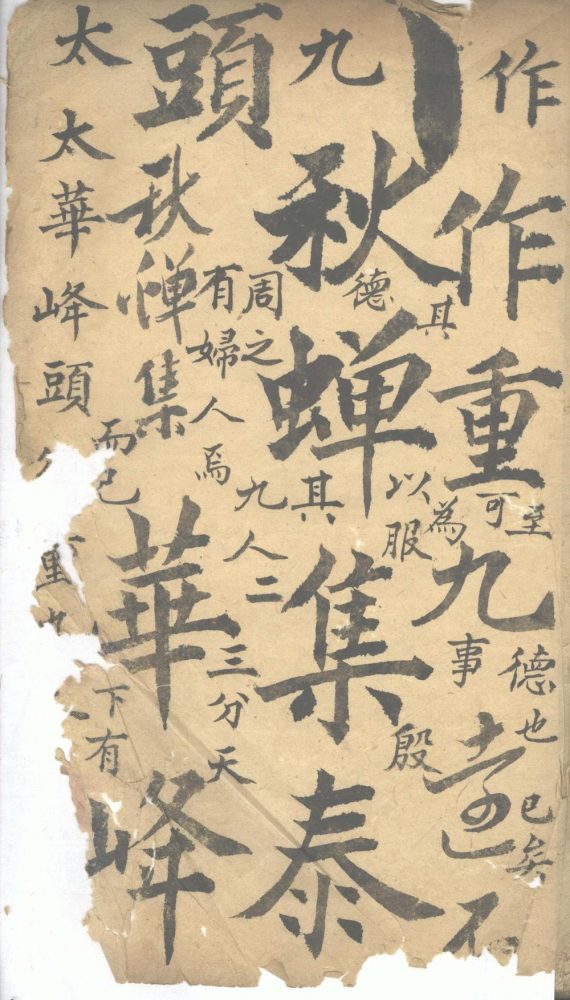 作
作重九
不
九
秋蝉集泰
頭
秋蝉集
華峰
太
太華峰頭
重
至
德也
已矣
其
可
為
事
德
以服
殷
其
周之
德
九人二
有婦人焉
三分天
而已
下有